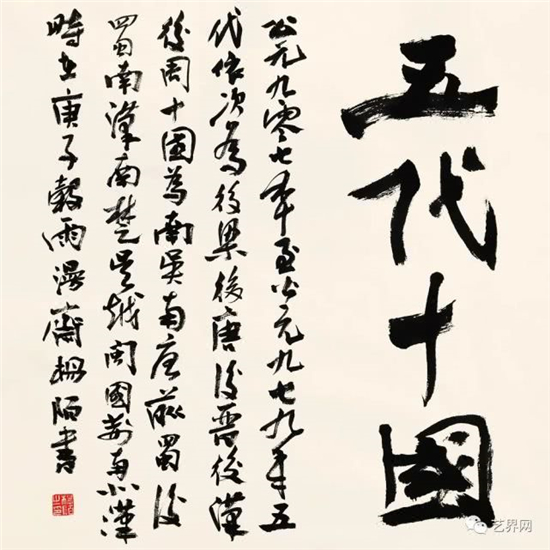 五代十國
公元九零七年至公元九七九年五
代依次為後梁後唐後晉後漢
後周十國為南吳南唐前蜀後
蜀南漢南楚吳越閩國荊南北漢
時在庚子穀雨齋書
艺界网